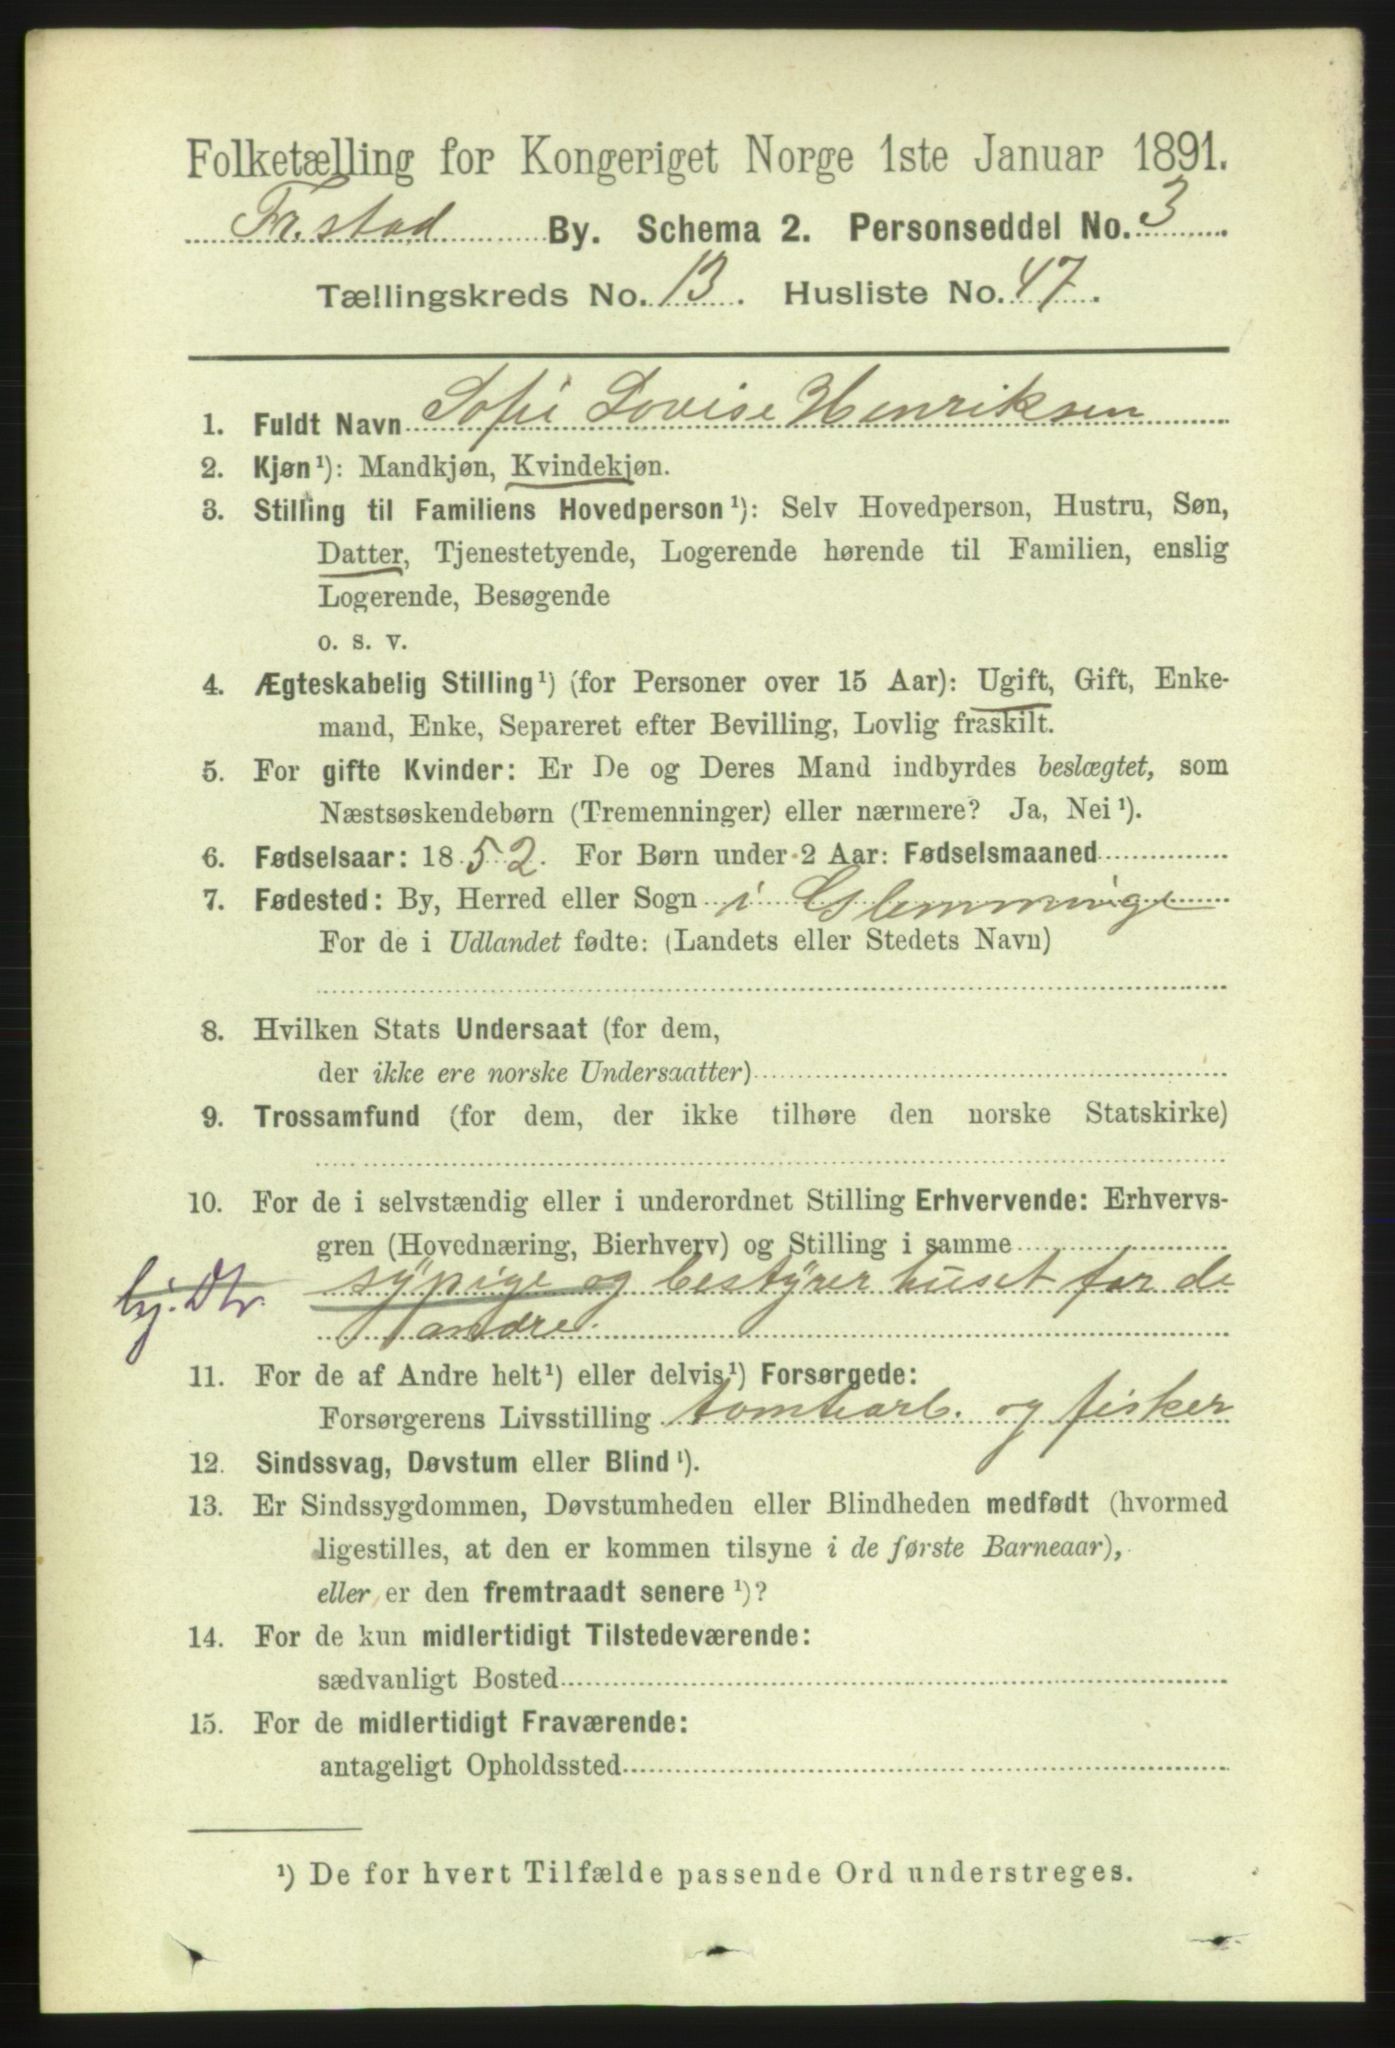 Folketælling for Kongeriget Norge 1ste Januar 1891.
Fr.stad By. Schema 2. Personseddel No. 3
Tællingskreds No. 13. Husliste No. 47.
1. Fuldt Navn Sofie Lovise Henriksen
2. Kjøn¹): Mandkjøn, Kvindekjøn.
3. Stilling til Familiens Hovedperson¹): Selv Hovedperson, Hustru, Søn,
Datter, Tjenestetyende, Logerende hørende til Familien, enslig
Logerende, Besøgende
o. s. v.
4. Ægteskabelig Stilling¹) (for Personer over 15 Aar): Ugift, Gift, Enke-
mand, Enke, Separeret efter Bevilling, Lovlig fraskilt.
5. For gifte Kvinder: Er De og Deres Mand indbyrdes beslægtet, som
Næstsøskendebørn (Tremenninger) eller nærmere? Ja, Nei¹).
6. Fødselsaar: 1852. For Børn under 2 Aar: Fødselsmaaned
7. Fødested: By, Herred eller Sogn i Glemminge
For de i Udlandet fødte: (Landets eller Stedets Navn)
8. Hvilken Stats Undersaat (for dem,
der ikke ere norske Undersaatter)
9. Trossamfund (for dem, der ikke tilhøre den norske Statskirke)
10. For de i selvstændig eller i underordnet Stilling Erhvervende: Erhvervs-
gren (Hovednæring, Bierhverv) og Stilling i samme
hj. Dtr. sypige og bestyrer huset for de
andre.
11. For de af Andre helt¹) eller delvis¹) Forsørgede:
Forsørgerens Livsstilling tomtearb. og fisker
12. Sindssvag, Døvstum eller Blind¹).
13. Er Sindssygdommen, Døvstumheden eller Blindheden medfødt (hvormed
ligestilles, at den er kommen tilsyne i de første Barneaar),
eller er den fremtraadt senere¹)?
14. For de kun midlertidigt Tilstedeværende:
sædvanligt Bosted
15. For de midlertidigt Fraværende:
antageligt Opholdssted
¹) De for hvert Tilfælde passende Ord understreges.